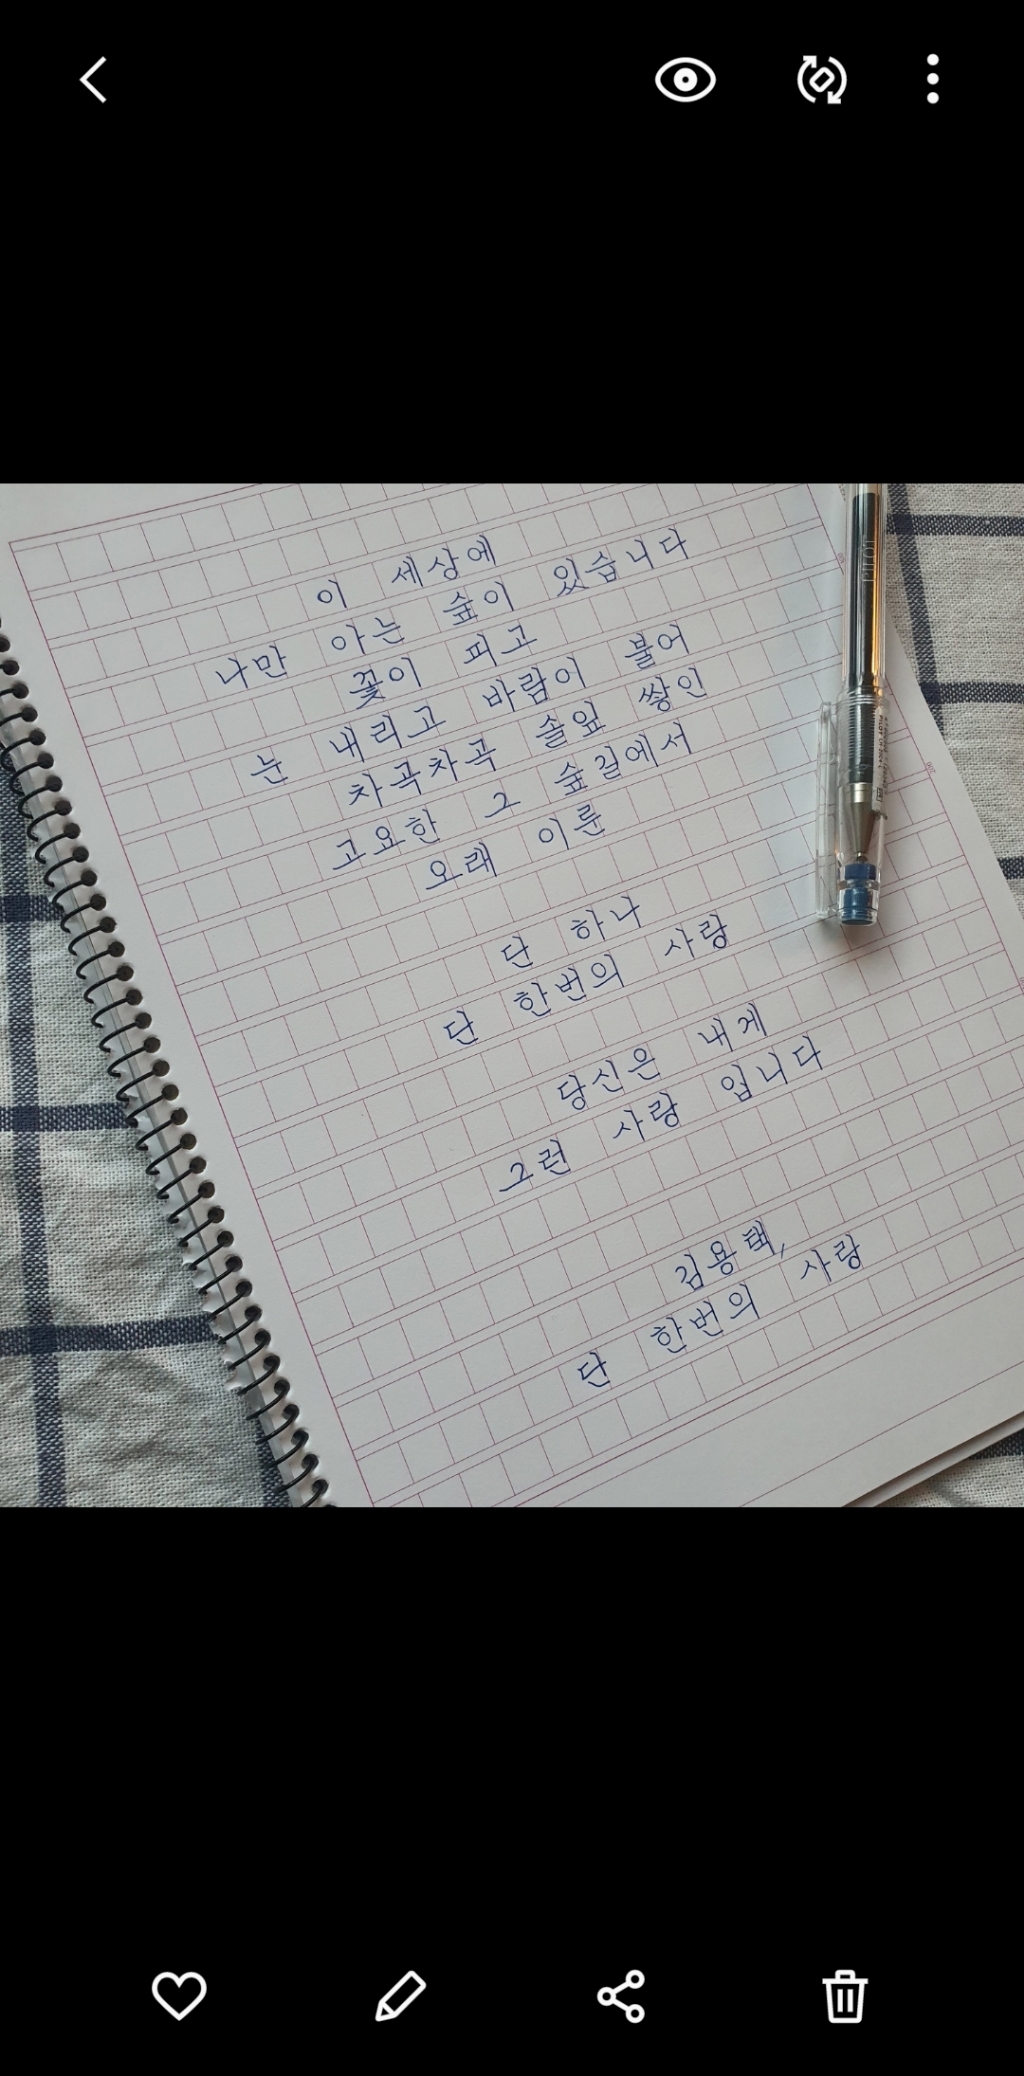 이 세상에
나만 아는 숲이 있습니다
꽃이 피고
눈 내리고 바람이 불어
차곡차곡 솔잎 쌓인
고요한 그 숲길에서
오래 이룬
단 하나
단 한번의 사랑
당신은 내게
그런 사랑 입니다
김용택,
단 한번의 사랑